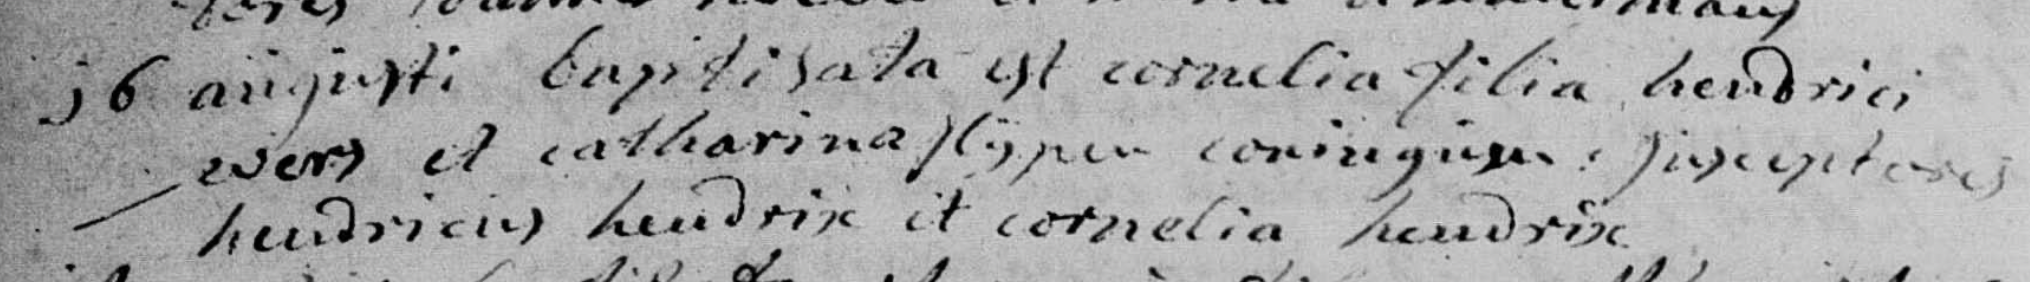 16 augusti baptisata est cornelia filia hendrici
wers et catharina slijpen coniugum. susceptores
hendricus hendrix et cornelia hendrix